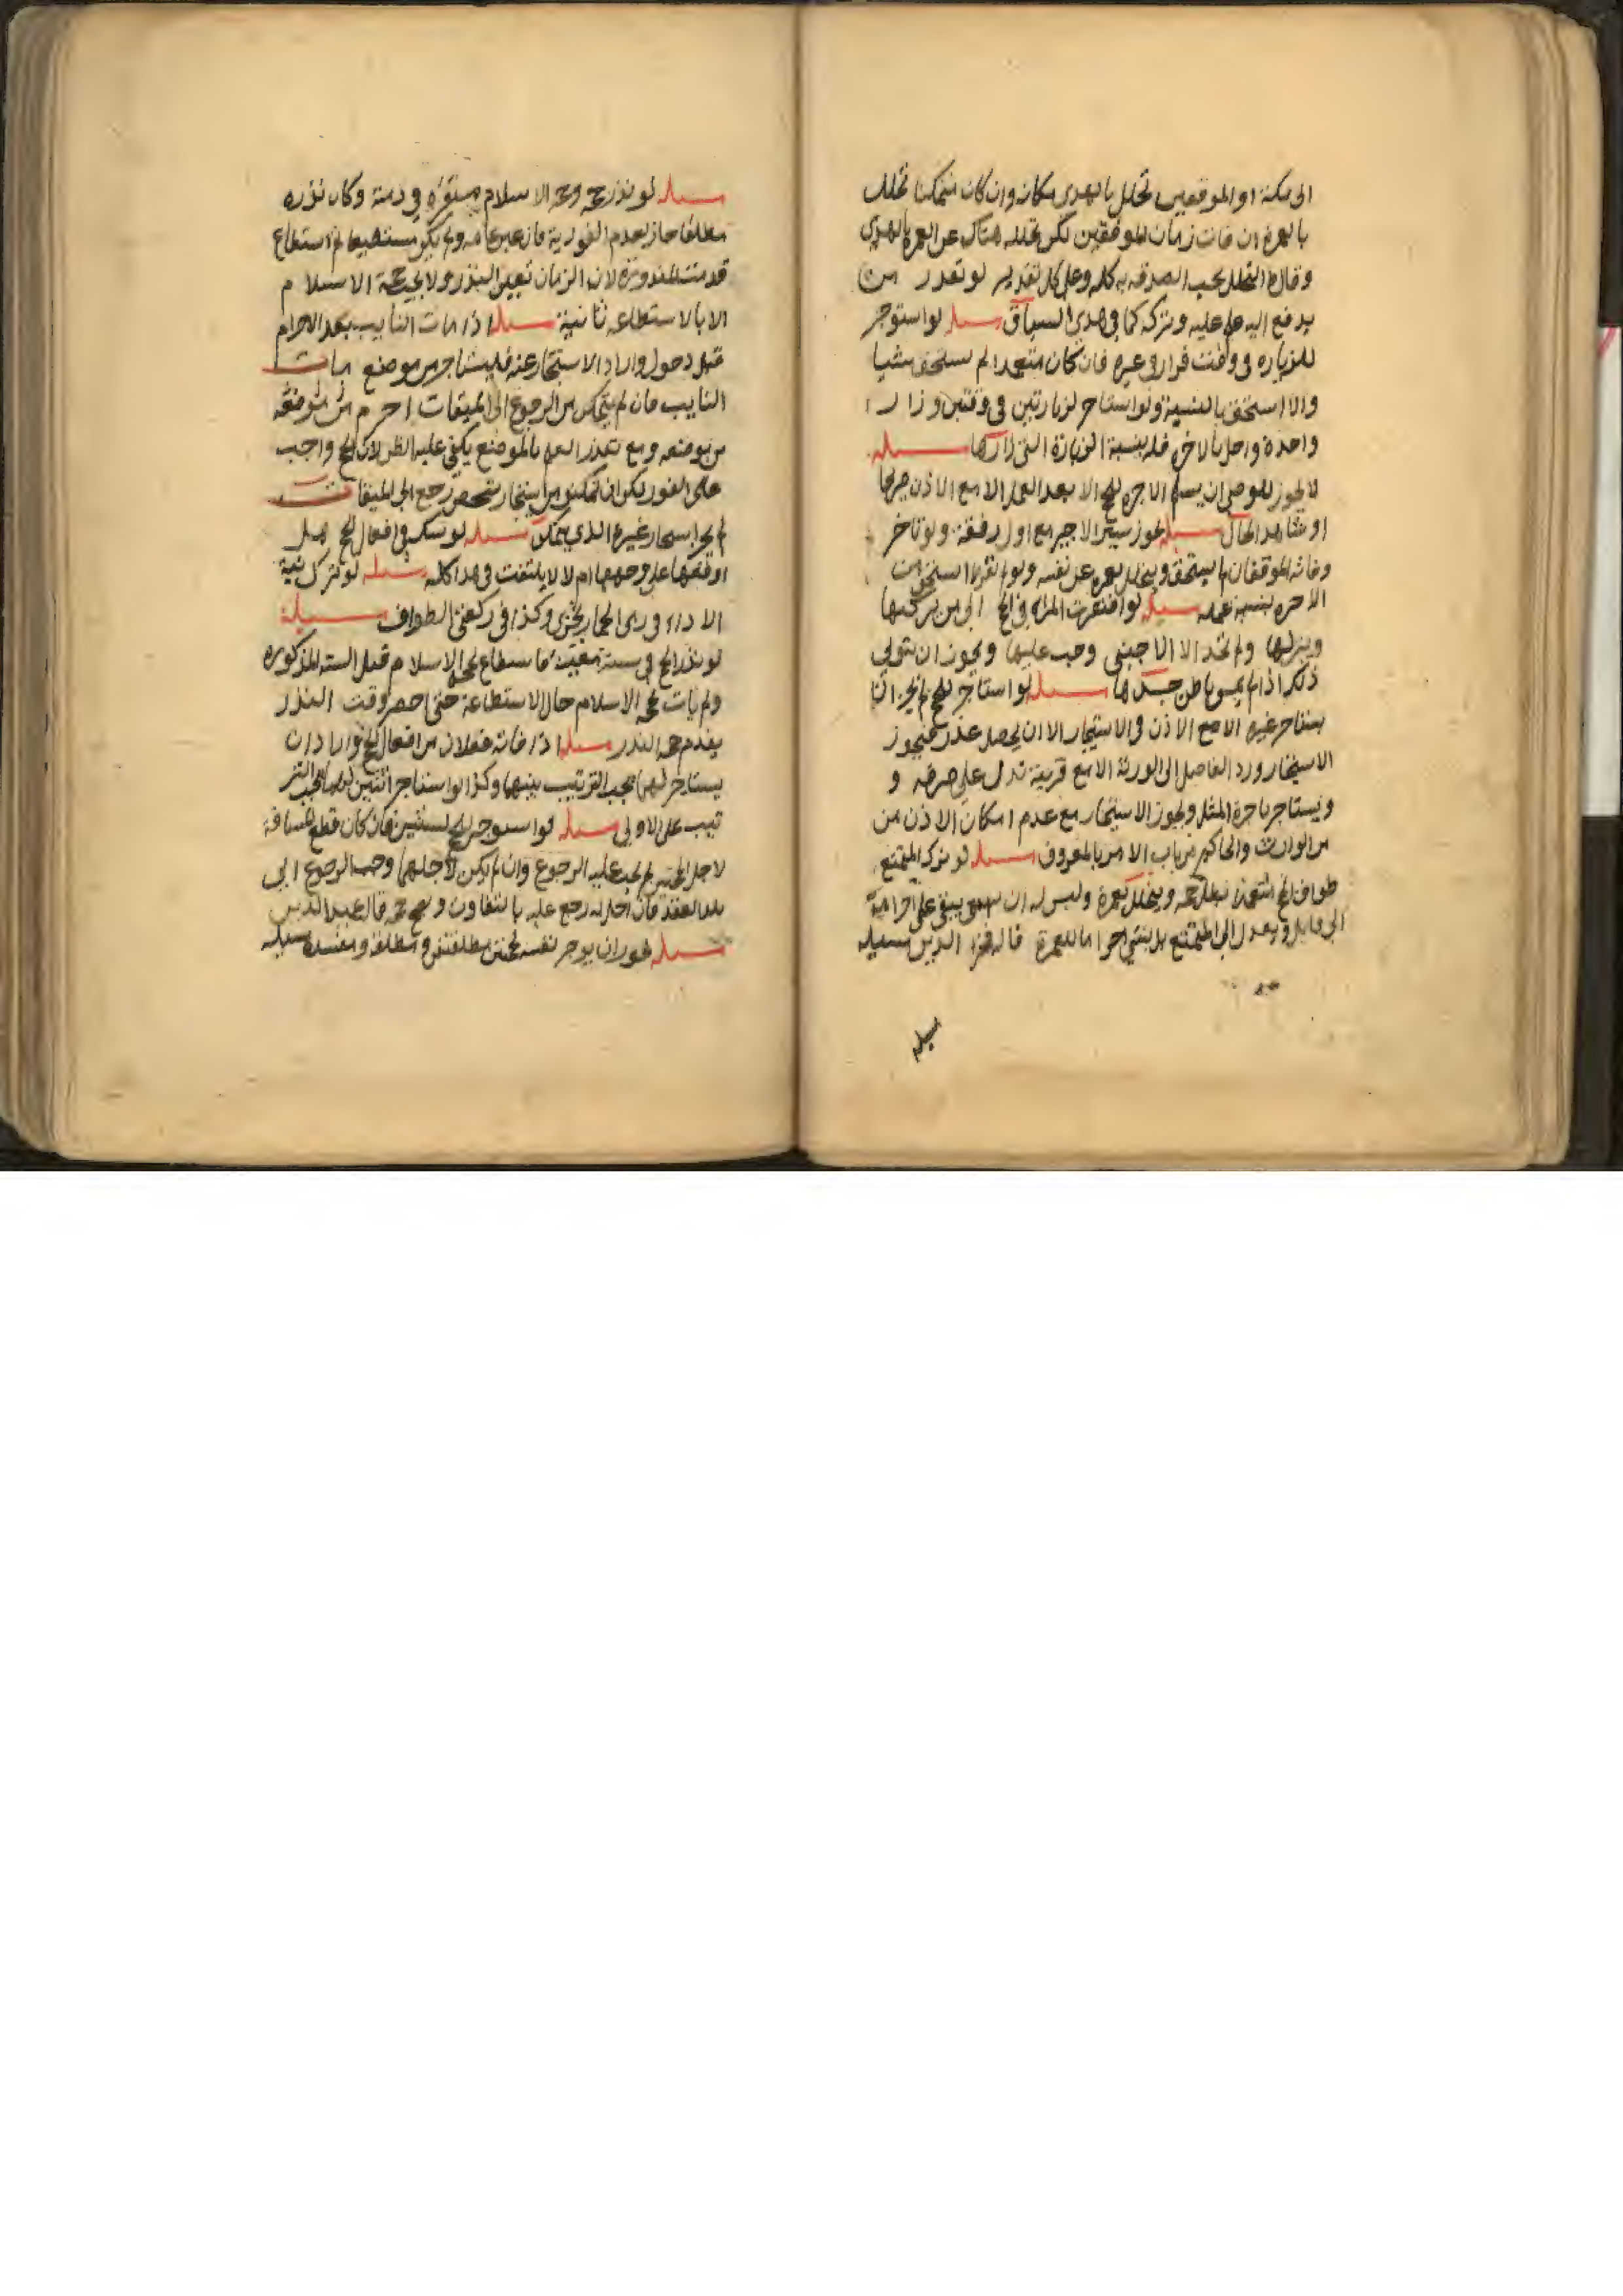 الى مكة او الموقفين تحلل بالهدى مكانه وان كان متمكنا تحلل
بالعمرة ان فات زمان الموقفين لكن تحلله هناك عن العمرة بالهدي
وقال التحلل يجب الصدقه به كله وعلى كل تقدير لو تعذر من
يدفع اليه علم عليه وتركه كما في هدي السياق مسئله لو استوجر
للزياره في وقت فزار في غيره فان كان متعمدا لم يستحق شيا
والا استحق بالنسبة ولو استاجر لزيارتين في وقتين وزار
واحدة واخل بالاخرى فله بنسبة الزيارة التي زارها مسئله
لا يجوز للوصي ان يسلم الاجره للحج الا بعد العمل الا مع الاذن صريحا
او شاهد الحال مسئله يجوز سير الاجير مع اول رفقة ولو تاخر
وفاته الموقفان لم يستحق ويتحلل بعمره عن نفسه ولو لم استحق من
الاجره بنسبة عمله مسئله لو افتقرت المراه في الحج الى من يركبها
وينزلها ولم تجد الا الاجنبي وجب عليها ويجوز ان يتولى
ذلك اذا لم يمس باطن جسدها مسئله لو استاجر للحج لم يجز ان
يستاجر غيره الا مع الاذن في الاستيجار الا ان يحصل عذر فيجوز
الاستيجار ورد الفاضل الى الورثة الا مع قرينة تدل على صرفه و
ويستاجر باجرة المثل ويجوز الاستيجار مع عدم امكان الاذن من
من الوارث والحاكم من باب الامر بالمعروف مسئله لو ترك المتمتع
طواف الحج متعمدا بطل حجه ويتحلل بعمرة وليس له ان يبقى على احرامه
الى قابل ويعدل الى التمتع بل ينشي احراما للعمرة قاله فخر الدين مسئله
مسئله
مسئله لو نذر حجه وحجة الاسلام مستقره في ذمته وكان نذره
مطلقا جاز بعدم الفورية فان عين عامه ولم يكن مستطيعا ثم استطاع
قدمت المنذورة لان الزمان تعين للنذر ولا يجب حجة الاسلام
الا بالاستطاعه ثانية مسئله اذا مات النايب بعد الاحرام
قبل دخول واراد الاستيجار عنه فليستاجر من موضع مات
النايب فان لم يتمكن من الرجوع الى الميقات احرم من موضعه
من موضعه ومع تعذر العلم بالموضع يكفي غلبه الظن لان الحج واجب
على الفور لكن ان تمكن من استيجار شخص رجع الى الميقات
لم يجز استيجار غيره الذي يتمكن مسئله لو شك في افعال الحج هل
اوقعها على وجهها ام لا لا يلتفت في هذا كله مسئله لو ترك نية
الاداء في رمى الجمار يجزى وكذا في ركعتي الطواف مسئلة
لو نذر الحج في سنة معينة فاستطاع لحج الاسلام قبل السنه المذكوره
ولم يات بحجة الاسلام حال الاستطاعة حتى حضر وقت النذر
يقدم حجة النذر مسئله اذا فاته فعلان من افعال الحج واراد ان
يستاجر لهما يجب الترتيب بينهما وكذا لو استاجر اثنين لهما يجب التر
تيب على الاولى مسئله لو استوجر لحج لسنتين فان كان قطع المسافة
لاجل الحجتين لم يجب عليه الرجوع وان لم يكن لاجلهما وجب الرجوع الى
بلد العقد فان اخل به رجع عليه بالتفاوت وصح حجه قاله عميد الدين
مسئله يجوز ان يوجر نفسه لحجتين مطلقتين و مطلقة و مفسدة مسئله